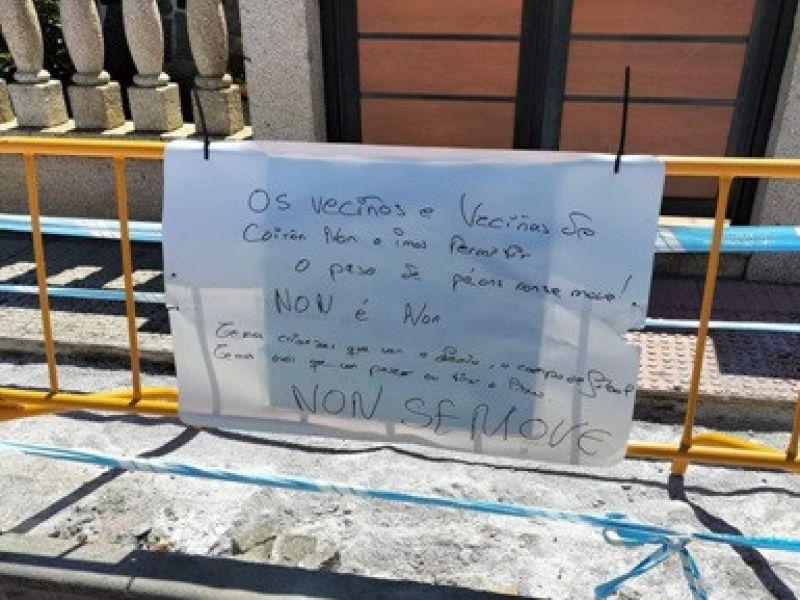 Os veciños e Veciñas do
Coirón Non o imos Permitir
O paso de peóns non se move!
NON é Non
Temos crianzas que van o , o campo de fútbol
Temos que que un paseo ou
NON SE MOVE